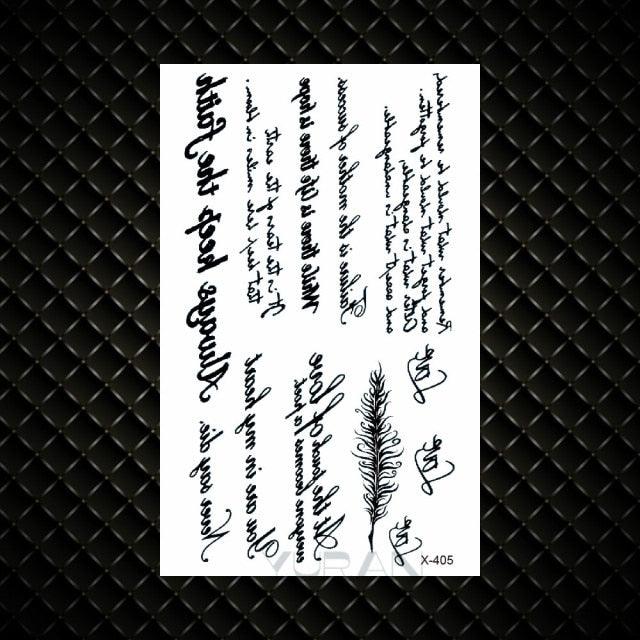 Remember what should be remembered,
and forget what should be forgotten.
Alter what is changeable,
and accept what is
Failure is the mother of success
While there is Life there is hope
Always keep the Faith
Love
Love
Love
At the touch of love
everyone becomes a poet
You are in my heart
Never say die.
YURAN
X-405